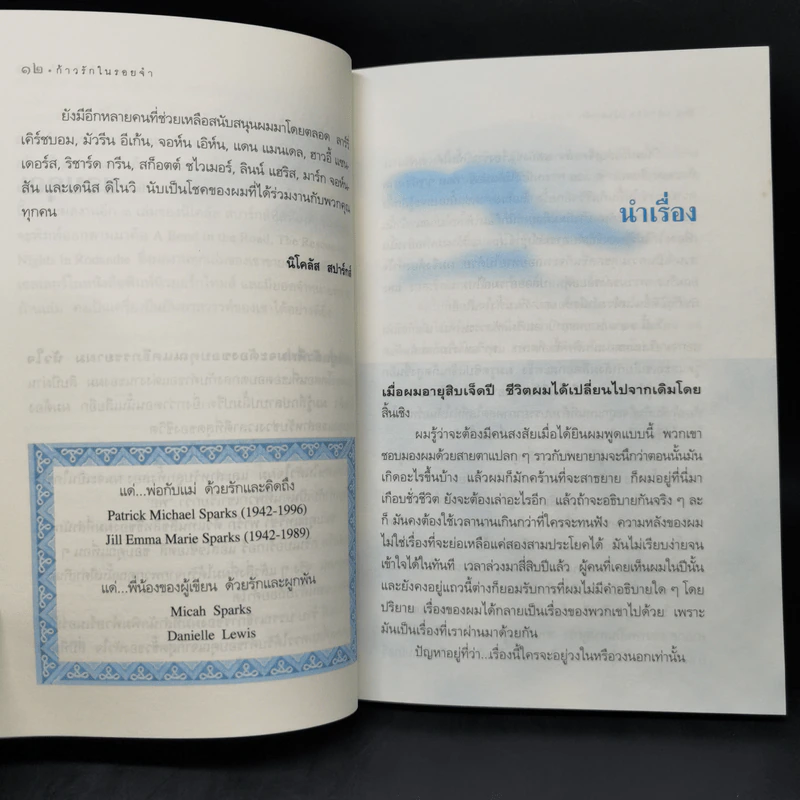 ๑๒ • ก้าวรักในรอยจำ
ยังมีอีกหลายคนที่ช่วยเหลือสนับสนุนผมมาโดยตลอด ลาร์รี่
เคิร์ชบอม, มัวรีน อีเก้น, จอห์น เอิห์น, แดน แมนเดล, ฮาวอี้ แซน-
เดอร์ส, ริชาร์ด กรีน, สก็อตต์ ชไวเมอร์, ลินน์ แฮริส, มาร์ก จอห์น-
สัน และเดนิส ดิโนวิ นับเป็นโชคของผมที่ได้ร่วมงานกับพวกคุณ
ทุกคน
นิโคลัส สปาร์กส์
แด่...พ่อกับแม่ ด้วยรักและคิดถึง
Patrick Michael Sparks (1942-1996)
Jill Emma Marie Sparks (1942-1989)
แด่...พี่น้องของผู้เขียน ด้วยรักและผูกพัน
Micah Sparks
Danielle Lewis
นำเรื่อง
เมื่อผมอายุสิบเจ็ดปี ชีวิตผมได้เปลี่ยนไปจากเดิมโดย
สิ้นเชิง
ผมรู้ว่าจะต้องมีคนสงสัยเมื่อได้ยินผมพูดแบบนี้ พวกเขา
ชอบมองผมด้วยสายตาแปลก ๆ ราวกับพยายามจะนึกว่าตอนนั้นมัน
เกิดอะไรขึ้นบ้าง แล้วผมก็มักคร้านที่จะสาธยาย ก็ผมอยู่ที่นี่มา
เกือบชั่วชีวิต ยังจะต้องเล่าอะไรอีก แล้วถ้าจะอธิบายกันจริง ๆ ละ
ก็ มันคงต้องใช้เวลานานเกินกว่าที่ใครจะทนฟัง ความหลังของผม
ไม่ใช่เรื่องที่จะย่อเหลือแค่สองสามประโยคได้ มันไม่เรียบง่ายจน
เข้าใจได้ในทันที เวลาล่วงมาสี่สิบปีแล้ว ผู้คนที่เคยเห็นผมในปีนั้น
และยังคงอยู่แถวนี้ต่างก็ยอมรับการที่ผมไม่มีคำอธิบายใด ๆ โดย
ปริยาย เรื่องของผมได้กลายเป็นเรื่องของพวกเขาไปด้วย เพราะ
มันเป็นเรื่องที่เราผ่านมาด้วยกัน
ปัญหาอยู่ที่ว่า...เรื่องนี้ใครจะอยู่วงในหรือวงนอกเท่านั้น